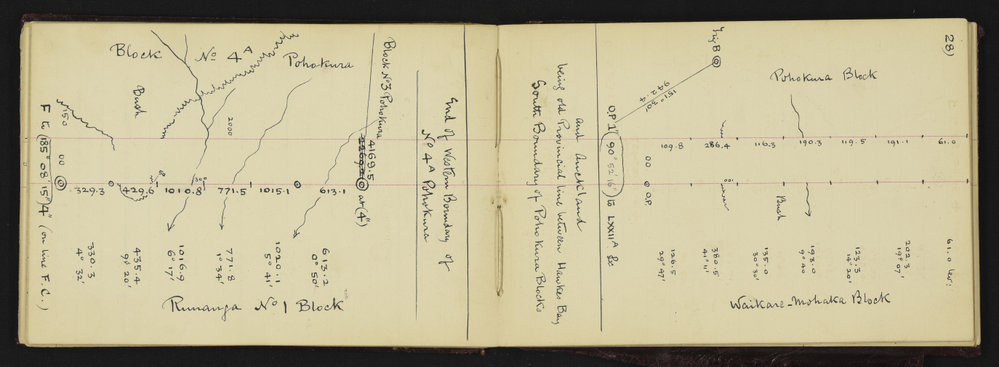 Block No 4A Pohokura
Block No 3 Pohokura
Bush
150
2000
4169.5
00
329.3
429.6
1010.8
771.5
1015.1
613.1
at (4")
F to (185° 08' 15") 4" (on line F.C.)
330.3
4° 32'
435.4
9° 20'
1016.9
6° 17'
771.8
1° 34'
1020.1
5° 41'
613.2
0° 50'
Runanga No 1 Block
End of Western Boundary of
No 4A Pohokura
South Boundary of Pohokura Blocks
being old Provincial line between Hawkes Bay
and Auckland
28)
Trig B
151° 30'
942.4
Pohokura Block
O.P. 1" (90° 52' 16") to LXXII A &c
00
O.P.
109.8
286.4
116.3
190.3
119.5
191.1
61.0
Bush
126.5
29° 47'
380.5
41° 11'
135.0
30° 30'
193.0
9° 40'
123.3
14° 20'
202.3
19° 07'
61.0 lev:
Waikare-Mohaka Block